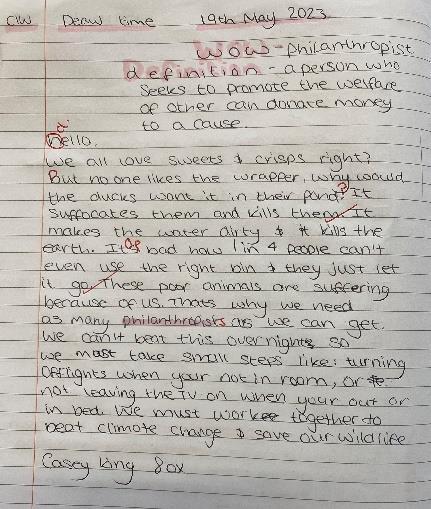 CW Dear time 19th May 2023
WOW - philanthropist
definition - a person who
seeks to promote the welfare
of other can donate money
to a cause.
Hello.
We all love sweets & crisps right?
But no one likes the wrapper, why would
the ducks want it in their pond? It
suffocates them and kills them. It
makes the water dirty & it kills the
earth. It's bad how 1 in 4 people can't
even use the right bin & they just let
it go. These poor animals are suffering
because of us. Thats why we need
as many philanthropists as we can get.
We can't beat this overnight, so
we must take small steps like: turning
off lights when your not in room, or
not leaving the TV on when your out or
in bed. We must work together to
beat climate change & save our wildlife
Casey King 8ox